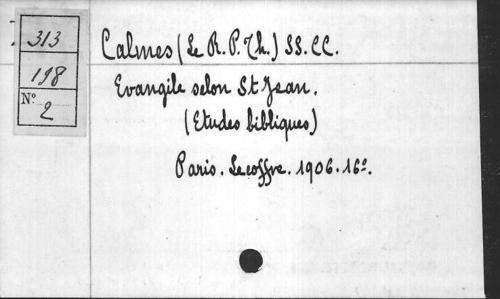 313
198
N° 2
Calmes (Le R. P. Th.) SS. CC.
Evangile selon St Jean.
(Etudes bibliques)
Paris. Lecoffre. 1906. 16°.